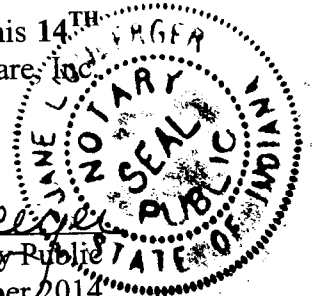 his 14TH
are, Inc.
JANE L
NOTARY
SEAL
PUBLIC
STATE OF INDIANA
y Public
ber 2014